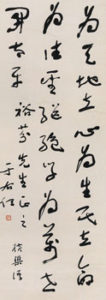 為天地立心為生民立命
為往聖繼絕學為萬世
開太平 裕芬先生正之
于右任